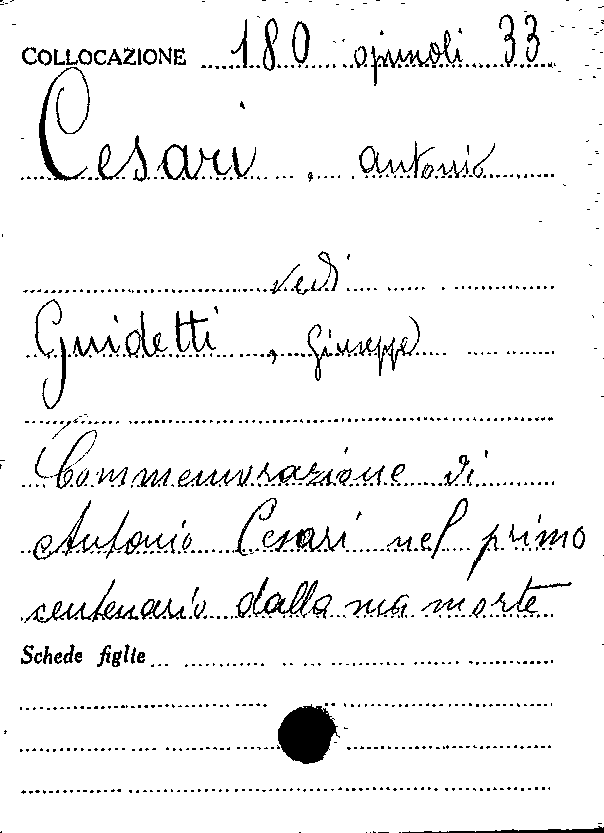 COLLOCAZIONE 180 opuscoli 33
Cesari, Antonio
vedi
Guidetti, Giuseppe
Commemorazione di
Antonio Cesari nel primo
centenario dalla sua morte
Schede figlie